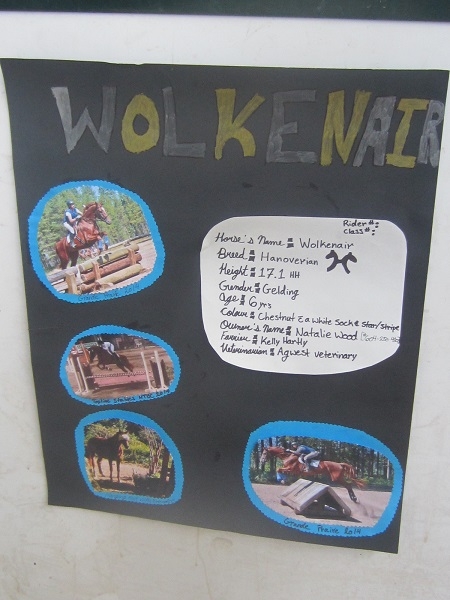 WOLKENAIR
Rider #:
Class #:
Horse's Name: Wolkenair
Breed: Hanoverian
Height: 17.1 HH
Gender: Gelding
Age: 6 yrs
Colour: Chestnut & a White Sock & Star/Stripe
Owner's Name: Natalie Wood
Farrier: Kelly Hartly
Veterinarian: Agwest Veterinary
Grande Prairie 2014